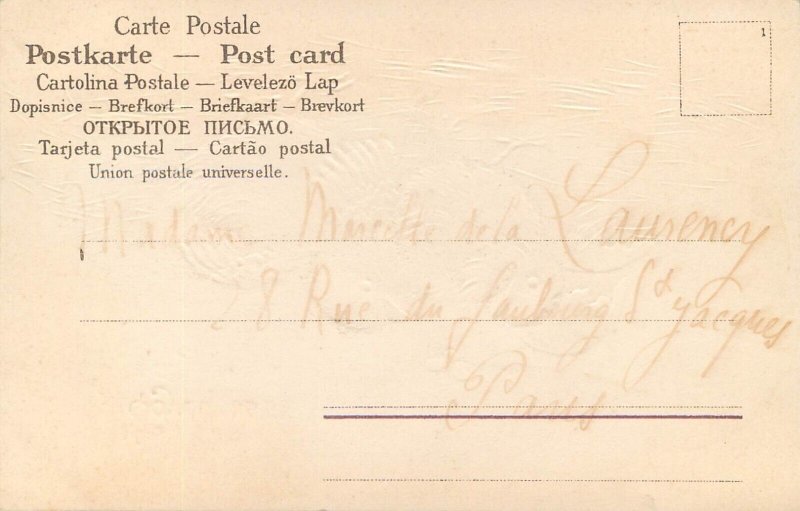 Carte Postale
Postkarte — Post card
Cartolina Postale — Levelezö Lap
Dopisnice — Brefkort — Briefkaart — Brevkort
ОТКРЫТОЕ ПИСЬМО.
Tarjeta postal — Cartão postal
Union postale universelle.
1
Madame Marcelle de la Laurency
28 Rue du faubourg St Jacques
Paris